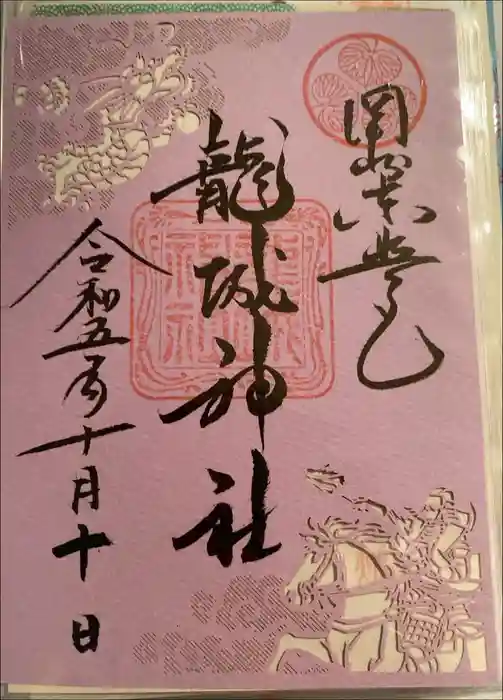 龍城神社
令和五年十月十日